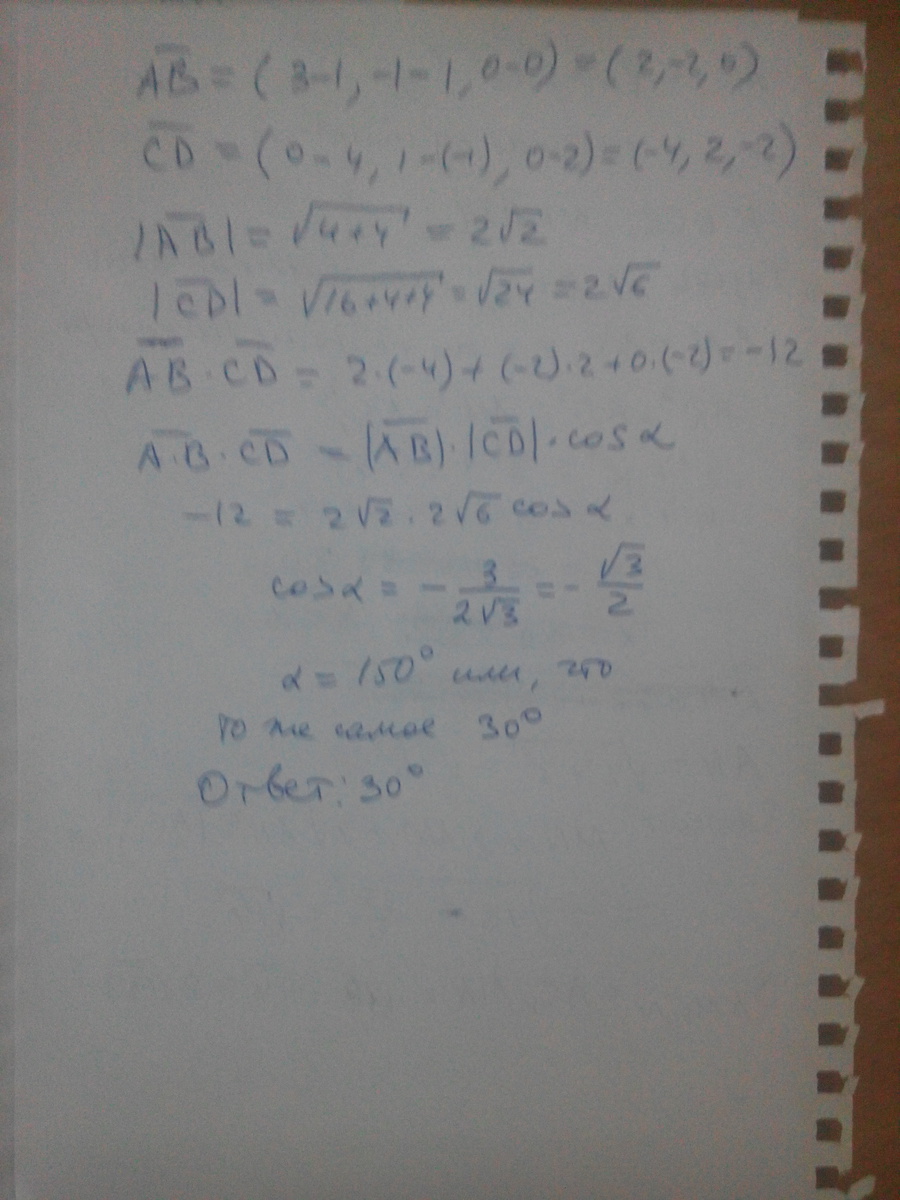 AB = (3-1, -1-1, 0-0) = (2, -2, 0)
CD = (0-4, 1-(-1), 0-2) = (-4, 2, -2)
|AB| = √4+4 = 2√2
|CD| = √16+4+4 = √24 = 2√6
AB · CD = 2·(-4) + (-2)·2 + 0·(-2) = -12
A·B · CD = |AB|·|CD|·cos α
-12 = 2√2 · 2√6 cos α
cos α = - 3/2√3 = - √3/2
α = 150° или, что
то же самое 30°
Ответ: 30°